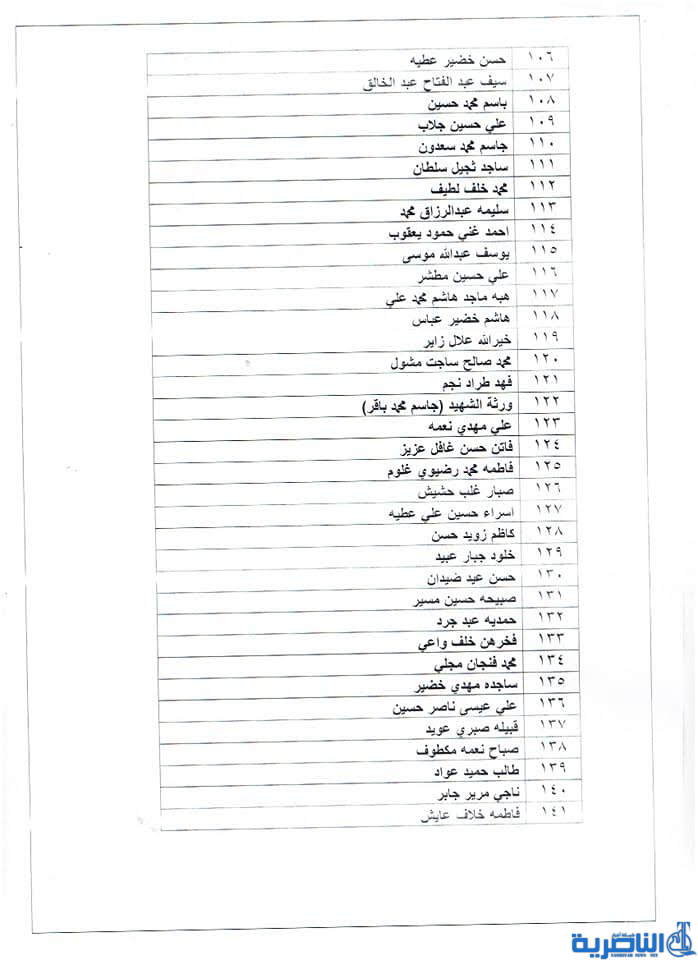 ١٠٦ حسن خضير عطيه
١٠٧ سيف عبد الفتاح عبد الخالق
١٠٨ باسم محمد حسين
١٠٩ علي حسين جلاب
١١٠ جاسم محمد سعدون
١١١ ساجد ثجيل سلطان
١١٢ محمد خلف لطيف
١١٣ سليمه عبدالرزاق محمد
١١٤ احمد غني حمود يعقوب
١١٥ يوسف عبدالله موسى
١١٦ علي حسين مطشر
١١٧ هبه ماجد هاشم محمد علي
١١٨ هاشم خضير عباس
١١٩ خيرالله علال زاير
١٢٠ محمد صالح ساجت مشول
١٢١ فهد طراد نجم
١٢٢ ورثة الشهيد (جاسم محمد باقر)
١٢٣ علي مهدي نعمه
١٢٤ فاتن حسن غافل عزيز
١٢٥ فاطمه محمد رضيوي غلوم
١٢٦ صبار غلب حشيش
١٢٧ اسراء حسين علي عطيه
١٢٨ كاظم زويد حسن
١٢٩ خلود جبار عبيد
١٣٠ حسن عيد ضيدان
١٣١ صبيحه حسين مسير
١٣٢ حمديه عبد جرد
١٣٣ فخرهن خلف واعي
١٣٤ محمد فنجان مجلي
١٣٥ ساجده مهدي خضير
١٣٦ علي عيسى ناصر حسين
١٣٧ قبيله صبري عويد
١٣٨ صباح نعمه مكطوف
١٣٩ طالب حميد عواد
١٤٠ ناجي مرير جابر
١٤١ فاطمه خلاف عايش
شبكة أخبار
الناصرية
NASIRIYAH NEWS NET